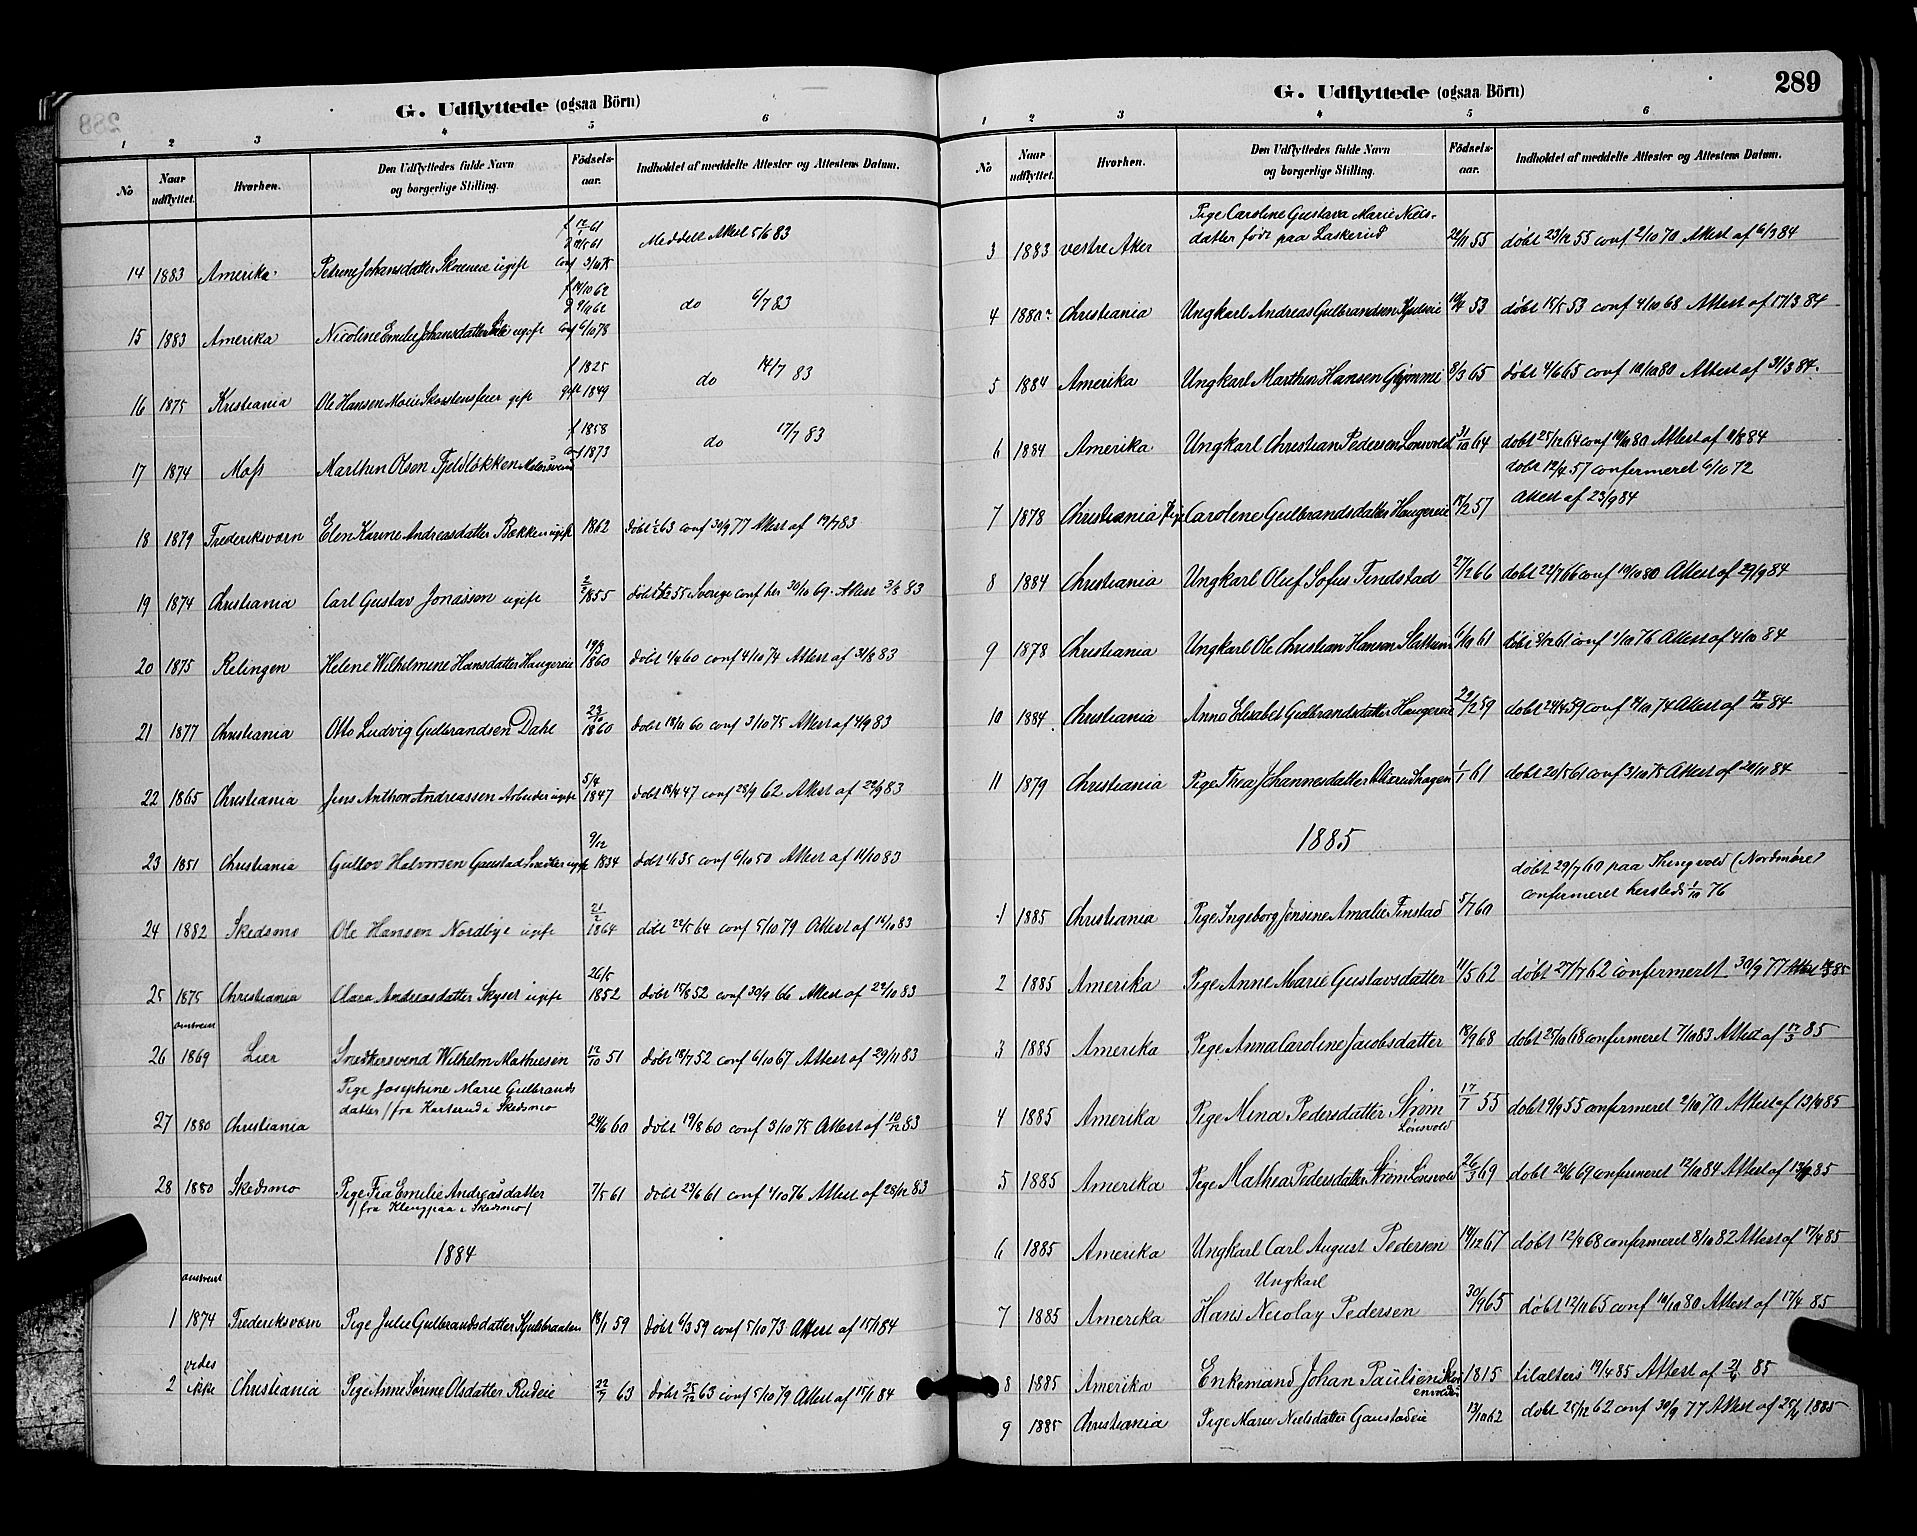 G. Udflyttede (ogsaa Börn)
1 2 3 4 5 6
No Naar udflyttet. Hvorhen. Den Udflyttedes fulde Navn og borgerlige Stilling. Födsels-aar. Indholdet af meddelte Attester og Attestens Datum.
14 1883 Amerika Petrine Johansdatter ugift Meddelt Attest 5/6 83
15 1883 Amerika Nicoline Emilie Johansdatter ugift conf 6/10 78 do 6/7 83
16 1875 Kristiania Ole Hansen Moeie Skorstensfeier gift f 1825 gift 1849 do 14/7 83
17 1874 Moss Marthin Olsen Fjeldløkken f 1858 conf 1873 do 17/7 83
18 1879 Frederiksværn Elen Karine Andreasdatter Bakken ugift 1862 døbt 63 conf 30/9 77 Attest af 19/7 83
19 1874 Christiania Carl Gustav Jonassen ugift 1855 døbt 55 Sverige conf her 30/10 69. Attest 3/8 83
20 1875 Relingen Helene Wilhelmine Hansdatter Haugereie 19/3 1860 døbt 1/4 60 conf 4/10 74 Attest af 31/8 83
21 1877 Christiania Otto Ludvig Gulbrandsen Dahl 23/10 1860 døbt 18/11 60 conf 3/10 75 Attest af 4/9 83
22 1865 Christiania Jens Anthon Andreassen Arbeider ugift 5/4 1847 døbt 18/4 47 conf 28/9 62 Attest af 29/9 83
23 1851 Christiania Gullov Halvorsen Gaustad Snedker ugift 9/12 1834 døbt 1/1 35 conf 6/10 50 Attest af 11/10 83
24 1882 Skedsmo Ole Hansen Nordbye ugift 21/2 1864 døbt 22/5 64 conf 5/10 79 Attest af 14/10 83
25 1875 Christiania Clara Andreasdatter Skyset ugift 26/5 1852 døbt 15/8 52 conf 30/9 66 Attest af 22/10 83
omtrent
26 1869 Lier Snedkersvend Wilhelm Mathiesen 12/10 51 døbt 18/7 52 conf 6/10 67 Attest af 29/11 83
Pige Josephine Marie Gulbrands
datter / fra Karterud i Skedsmo
27 1880 Christiania 24/6 60 døbt 19/8 60 conf 3/10 75 Attest af 10/12 83
28 1880 Skedsmo Pige Fia Emilie Andreasdatter 7/5 61 døbt 23/6 61 conf 4/10 76 Attest af 28/12 83
/ fra Klengpaa i Skedsmo /
1884
omtrent
1 1874 Frederiksværn Pige Julie Gulbrandsdatter Kjulsbraaten 18/1 59 døbt 6/3 59 conf 5/10 73 Attest af 15/1 84
vides
2 ikke Christiania Pige Anne Sørine Olsdatter Rudeie 22/7 63 døbt 25/12 63 conf 5/10 79 Attest af 15/1 84
G. Udflyttede (ogsaa Börn) 289
1 2 3 4 5 6
No Naar udflyttet. Hvorhen. Den Udflyttedes fulde Navn og borgerlige Stilling. Födsels-aar. Indholdet af meddelte Attester og Attestens Datum.
Pige Caroline Gustava Marie Niels-
3 1883 vestre Aker datter født paa Laskerud 22/11 55 døbt 23/12 55 conf 2/10 70 Attest af 6/3 84
4 Christiania Ungkarl Andreas Gulbrandsen 53 døbt 15/5 53 conf 4/10 68 Attest af 17/3 84
5 1884 Amerika Ungkarl Marthin Hansen Gjømmi 8/3 65 døbt 4/6 65 conf 10/10 80 Attest af 31/3 84.
6 1884 Amerika Ungkarl Christian Pedersen Lønsvold 31/10 64 døbt 25/12 64 conf 10/10 80 Attest af 11/8 84
døbt 12/4 57 confermeret 6/10 72
7 1878 Christiania Pige Caroline Gulbrandsdatter Haugereie 14/2 57 Attest af 23/9 84
8 1884 Christiania Ungkarl Oluf Sofus Tindstad 27/2 66 døbt 22/7 66 conf 19/10 80 Attest af 29/9 84
9 1878 Christiania Ungkarl Ole Christian Hansen Slattum 6/10 61 døbt 8/12 61 conf 1/10 76 Attest af 4/10 84
10 1884 Christiania Anne Elisabet Gulbrandsdatter Haugereie 22/2 59 døbt 24/4 59 conf 4/10 74 Attest af 84
11 1879 Christiania Pige Thea Johannesdatter 1/1 61 døbt 20/5 61 conf 3/10 75 Attest af 20/11 84
1885
døbt 29/7 60 paa Thingvold (Nordmøre)
confermeret hersteds 1/10 76
1 1885 Christiania Pige Ingeborg Jensine Amalie Finstad 5/7 60
2 1885 Amerika Pige Anne Marie Gustavsdatter 11/5 62 døbt 27/7 62 confermeret 30/9 77 Attest 85
3 1885 Amerika Pige Anna Caroline Jacobsdatter 18/9 68 døbt 25/10 68 confermeret 7/10 83 Attest af 17/3 85
4 1885 Amerika Pige Mina Pedersdatter Strøm 17/7 55 døbt 9/9 55 confermeret 2/10 70 Attest af 13/4 85
Lønsvold
5 1885 Amerika Pige Mathea Pedersdatter Strøm Lønsvold 26/3 69 døbt 20/6 69 confermeret 12/10 84 Attest af 13/4 85
6 1885 Amerika Ungkarl Carl August Pedersen 14/12 67 døbt 12/4 68 confermeret 8/10 82 Attest af 17/4 85
Ungkarl
7 1885 Amerika Hans Nicolay Pedersen 30/9 65 døbt 12/11 65 conf 10/10 80 Attest af 17/4 85
8 1885 Amerika Enkemand Johan Paulsen 1815 tilalters 19/4 85 Attest af 21/4 85
9 1885 Christiania Pige Marie Nielsdatter Gaustadeie 13/10 62 døbt 25/12 62 conf 30/9 77 Attest af 25/4 1885